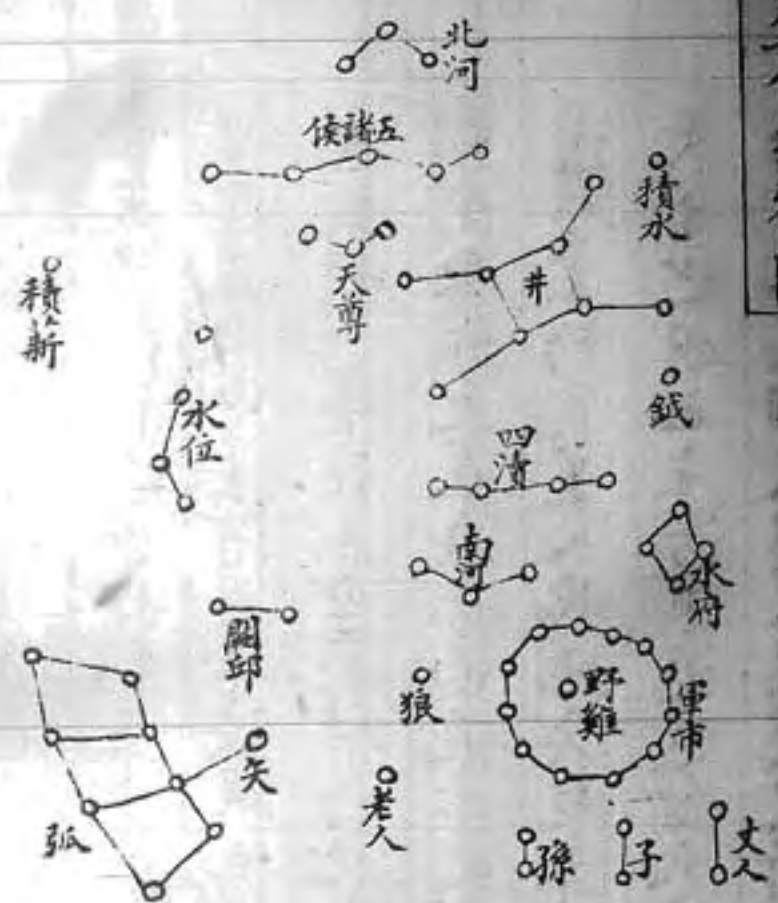 北河
五諸侯
積水
天尊
井
積薪
鉞
水位
四瀆
南河
水府
闕邱
狼
野雞
軍市
矢
老人
弧
孫
子
丈人